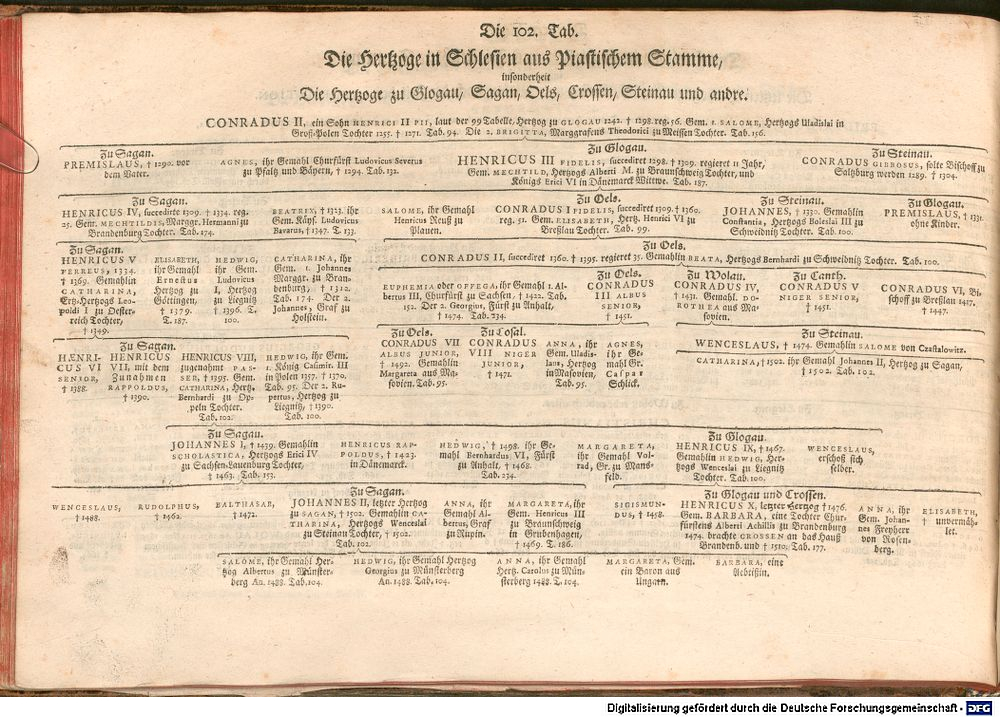 Die 102. Tab.
Die Hertzoge in Schlesien aus Piastischem Stamme,
insonderheit
Die Hertzoge zu Glogau, Sagan, Oels, Crossen, Steinau und andre.
CONRADUS II, ein Sohn HENRICI II PII, laut der 99 Tabelle, Hertzog zu GLOGAU 1242. † 1298. reg. 56. Gem. 1. SALOME, Hertzogs Uladislai in
Groß-Polen Tochter 1255. † 1271. Tab. 94. Die 2. BRIGITTA, Marggrafens Theodorici zu Meissen Tochter. Tab. 156.
Zu Sagan.
PREMISLAUS, † 1290. vor
dem Vater.
AGNES, ihr Gemahl Churfürst Ludovicus Severus
zu Pfaltz und Bäyern, † 1294. Tab. 132.
Zu Glogau.
HENRICUS III FIDELIS, succediret 1298. † 1309. regieret 11 Jahr,
Gem. MECHTILD, Hertzogs Alberti M. zu Braunschweig Tochter, und
Königs Erici VI in Dänemarck Wittwe. Tab. 187.
Zu Steinau.
CONRADUS GIBBOSUS, solte Bischoff zu
Saltzburg werden 1289. † 1304.
Zu Sagan.
HENRICUS IV, succedirte 1309. † 1334. reg.
25. Gem. MECHTILDIS, Marggr. Hermanni zu
Brandenburg Tochter. Tab. 174.
BEATRIX, † 1323. ihr
Gem. Käys. Ludovicus
Bavarus, † 1347. T. 133.
SALOME, ihr Gemahl
Henricus Reuß zu
Plauen.
Zu Oels.
CONRADUS I FIDELIS, succediret 1309. † 1360.
reg. 51. Gem. ELISABETH, Hertz. Henrici VI zu
Breßlau Tochter. Tab. 99.
Zu Steinau.
JOHANNES, † 1330. Gemahlin
Constantia, Hertzogs Boleslai III zu
Schweidnitz Tochter. Tab. 100.
Zu Glogau.
PREMISLAUS, † 1331.
ohne Kinder.
Zu Sagan.
HENRICUS V
FERREUS, 1334.
† 1369. Gemahlin
CATHARINA,
Ertz-Hertzogs Leo-
poldi I zu Oester-
reich Tochter,
† 1349.
ELISABETH,
ihr Gemahl
Ernestus
zu
Göttingen,
† 1379.
T. 187.
HEDWIG,
ihr Gem.
Ludovicus
Hertzog I
zu Liegnitz
† 1396. T.
100.
CATHARINA, ihr
Gem. 1. Johannes
Marggr. zu Bran-
denburg, † 1312.
Tab. 174. Der 2.
Johannes, Graf zu
Holstein.
Zu Oels.
CONRADUS II, succediret 1360. † 1395. regieret 35. Gemahlin BEATA, Hertzogs Bernhardi zu Schweidnitz Tochter. Tab. 100.
EUPHEMIA oder OFFEGA, ihr Gemahl 1. Al-
bertus III, Churfürst zu Sachsen, † 1422. Tab.
152. Der 2. Georgius, Fürst zu Anhalt,
† 1474. Tab. 234.
Zu Oels.
CONRADUS
III ALBUS
SENIOR,
† 1451.
Zu Wolau.
CONRADUS IV,
† 1431. Gemahl. DO-
ROTHEA aus Ma-
sovien.
Zu Canth.
CONRADUS V
NIGER SENIOR,
† 1451.
CONRADUS VI, Bi-
schoff zu Breßlau 1417.
† 1447.
Zu Sagan.
HENRI-
CUS VI
SENIOR,
† 1388.
HENRICUS
VII, mit dem
Zunahmen
RAPPOLDUS,
† 1390.
HENRICUS VIII,
zugenahmt PAS-
SER, † 1395. Gem.
CATHARINA, Hertz.
Bernhardi zu Op-
peln Tochter.
Tab. 102.
HEDWIG, ihr Gem.
1. König Casimir. III
in Polen 1357. † 1370.
Tab. 95. Der 2. Ru-
pertus, Hertzog zu
Liegnitz, † 1390.
Tab. 100.
Zu Oels.
CONRADUS VII
ALBUS JUNIOR,
† 1492. Gemahlin
Margareta aus Ma-
sovien. Tab. 95.
Zu Cosal.
CONRADUS
VIII NIGER
JUNIOR,
† 1471.
ANNA, ihr
Gem. Uladis-
laus, Hertzog
in Masovien,
Tab. 95.
AGNES,
ihr Ge-
mahl Gr.
Caspar
Schlick.
Zu Steinau.
WENCESLAUS, † 1474. Gemahlin SALOME von Czastalowitz.
CATHARINA, † 1502. ihr Gemahl Johannes II, Hertzog zu Sagan,
† 1502. Tab. 102.
Zu Sagan.
JOHANNES I, † 1439. Gemahlin
SCHOLASTICA, Hertzogs Erici IV
zu Sachsen-Lauenburg Tochter,
† 1463. Tab. 153.
HENRICUS RAP-
POLDUS, † 1423.
in Dänemarck.
HEDWIG, † 1498. ihr Ge-
mahl Bernhardus VI, Fürst
zu Anhalt, † 1468.
Tab. 234.
MARGARETA,
ihr Gemahl Vol-
rad, Gr. zu Mans-
feld.
Zu Glogau.
HENRICUS IX, † 1467.
Gemahlin HEDWIG, Her-
tzogs Wenceslai zu Liegnitz
Tochter. Tab. 100.
WENCESLAUS,
erschoß sich
selber.
WENCESLAUS,
† 1488.
RUDOLPHUS,
† 1462.
BALTHASAR,
† 1472.
Zu Sagan.
JOHANNES II, letzter Hertzog
zu SAGAN, † 1502. Gemahlin CA-
THARINA, Hertzogs Wenceslai
zu Steinau Tochter, † 1502.
Tab. 102.
ANNA, ihr
Gemahl Al-
bertus, Graf
zu Rupin.
MARGARETA, ihr
Gem. Henricus III
zu Braunschweig
in Grubenhagen,
† 1469. T. 186.
SIGISMUN-
DUS, † 1458.
Zu Glogau und Crossen.
HENRICUS X, letzter Hertzog † 1476.
Gem. BARBARA, eine Tochter Chur-
fürstens Alberti Achillis zu Brandenburg
1474. brachte CROSSEN an das Hauß
Brandenb. und † 1510. Tab. 177.
ANNA, ihr
Gem. Johan-
nes Freyherr
von Rosen-
berg.
ELISABETH,
† unvermäh-
let.
SALOME, ihr Gemahl Her-
tzog Albertus zu Münster-
berg An. 1488. Tab. 104.
HEDWIG, ihr Gemahl Hertzog
Georgius zu Münsterberg
An. 1488. Tab. 104.
ANNA, ihr Gemahl
Hertz. Carolus zu Mün-
sterberg 1488. T. 104.
MARGARETA, Gem.
ein Baron aus
Ungarn.
BARBARA, eine
Aebtißin.
Digitalisierung gefördert durch die Deutsche Forschungsgemeinschaft - DFG